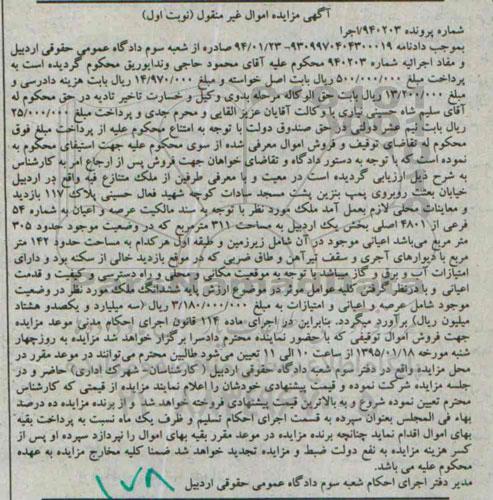 آگهی مزایده اموال غیر منقول (نوبت اول)
شماره پرونده ۹۴۰۲۰۳/اجرا
بموجب دادنامه ۹۳۰۹۹۷۰۴۰۴۳۰۰۰۱۹-۹۴/۰۱/۲۳ صادره از شعبه سوم دادگاه عمومی حقوقی اردبیل
و مفاد اجرائیه شماره ۹۴۰۲۰۳ محکوم علیه آقای محمود حاجی وندایوریق محکوم گردیده است به
پرداخت مبلغ ۵۰۰/۰۰۰/۰۰۰ ریال بابت اصل خواسته و مبلغ ۱۴/۹۷۰/۰۰۰ ریال بابت هزینه دادرسی و
مبلغ ۱۳/۲۰۰/۰۰۰ ریال بابت حق الوکاله مرحله بدوی وکیل و خسارت تاخیر تادیه در حق محکوم له
آقای سلیم شاه حسینی نیاری با وکالت آقایان عزیز القایی و محرم جدی و پرداخت مبلغ ۲۵/۰۰۰/۰۰۰
ریال بابت نیم عشر دولتی در حق صندوق دولت با توجه به امتناع محکوم علیه از پرداخت مبلغ فوق
محکوم له تقاضای توقیف و فروش اموال معرفی شده از سوی محکوم علیه جهت استیفای محکوم به
نموده است که با توجه به دستور دادگاه و تقاضای خواهان جهت فروش پس از ارجاع امر به کارشناس
به شرح ذیل ارزیابی گردیده است در معیت و با معرفی طرفین از ملک متنازع فیه واقع در اردبیل
خیابان بعثت روبروی پمپ بنزین پشت مسجد سادات کوچه شهید فعال حسینی پلاک ۱۱۷ بازدید
و معاینات محلی لازم بعمل آمد ملک مورد نظر با توجه به سند مالکیت عرصه و اعیان به شماره ۵۴
فرعی از ۴۸۰۱ اصلی بخش یک اردبیل به مساحت ۳۱۱ مترمربع که در وضعیت موجود حدود ۳۰۵
متر مربع می‌باشد اعیانی موجود در آن شامل زیرزمین و طبقه اول هرکدام به مساحت حدود ۱۴۲ متر
مربع با دیوارهای آجری و سقف تیرآهن و طاق ضربی که در موقع بازدید خالی از سکنه بود و دارای
امتیازات آب و برق و گاز میباشد با توجه به موقعیت مکانی و محلی و راه دسترسی و کیفیت و قدمت
اعیانی و با درنظر گرفتن کلیه عوامل موثر در موضوع ارزش پایه ششدانگ ملک مورد نظر در وضعیت
موجود شامل عرصه و اعیانی و امتیازات به مبلغ ۳/۱۸۰/۰۰۰/۰۰۰ ریال (سه میلیارد و یکصدو هشتاد
میلیون ریال) برآورد میگردد. بنابراین در اجرای ماده ۱۱۴ قانون اجرای احکام مدنی موعد مزایده
جهت فروش اموال توقیفی که با حضور نماینده محترم دادسرا برگزار خواهد شد مزایده به روزچهار
شنبه مورخه ۱۳۹۵/۰۱/۱۸ از ساعت ۱۰ الی ۱۱ تعیین می‌شود طالبین محترم می‌توانند در موعد مقرر در
محل مزایده واقع در دفتر سوم شعبه دادگاه حقوقی اردبیل ( کارشناسان - شهرک اداری) حاضر و در
جلسه مزایده شرکت نموده و قیمت پیشنهادی خودشان را اعلام نمایند مزایده از قیمتی که کارشناس
محترم تعیین نموده شروع و به بالاترین قیمت پیشنهادی فروخته خواهد شد و از برنده مزایده ده درصد
بهاء فی المجلس بعنوان سپرده به قسمت اجرای احکام تسلیم و ظرف یک ماه نسبت به پرداخت بقیه
بهای اموال اقدام نماید چنانچه برنده مزایده در موعد مقرر بقیه بهای اموال را نپردازد سپرده او پس از
کسر هزینه مزایده به نفع دولت ضبط و مزایده تجدید خواهد شد ضمنا کلیه مخارج مزایده به عهده
محکوم علیه می باشد.
مدیر دفتر اجرای احکام شعبه سوم دادگاه عمومی حقوقی اردبیل
۱۷۸